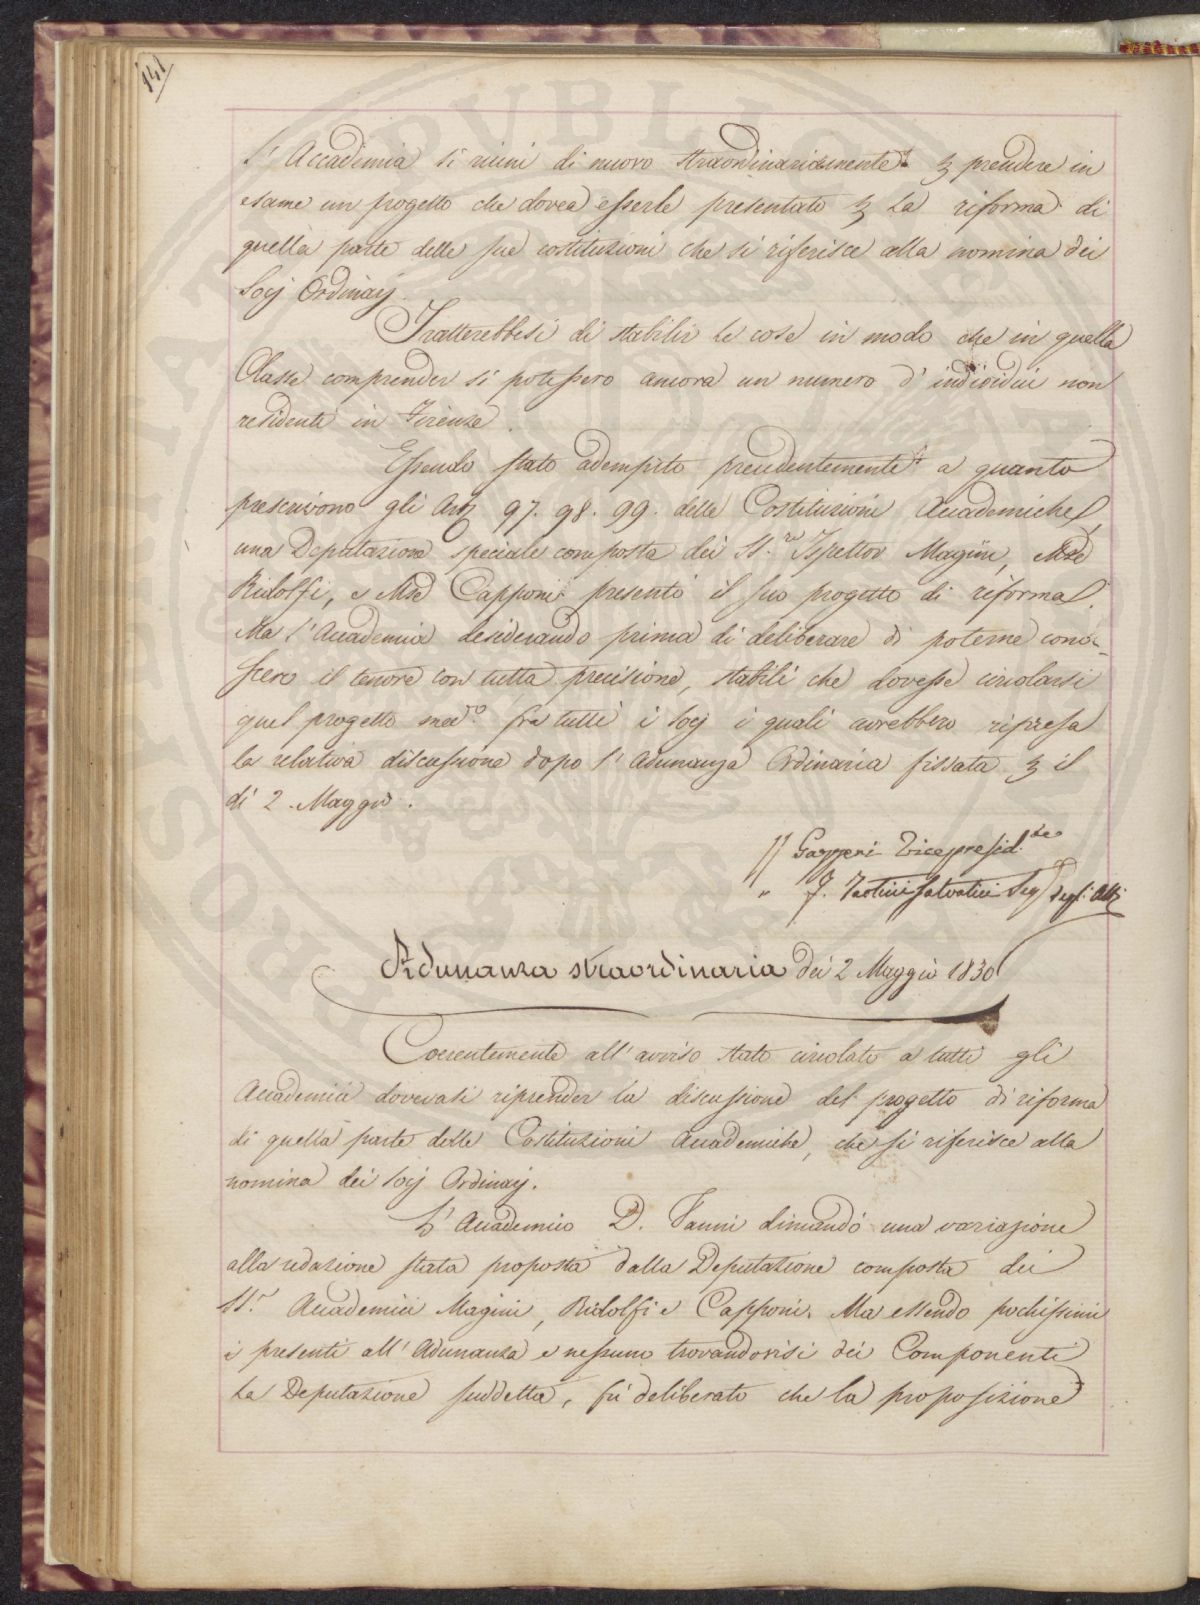 141
L' Accademia si riunì di nuovo straordinariamente p prendere in
esame un progetto che dovea esserle presentato p La riforma di
quella parte delle sue costituzioni che si riferisce alla nomina dei
Socj Ordinarj.
Tratterebbesi di stabilir le cose in modo che in quella
Classe comprender si potessero ancora un numero d' individui non
residenti in Firenze.
Essendo stato adempito precedentemente a quanto
prescrivono gli Art 97. 98. 99. delle Costituzioni Accademiche,
una Deputazione speciale composta dei SS.ri Ispettor Magini, Mse
Ridolfi, e Mse Capponi presentò il suo progetto di riforma.
Ma l' Accademia desiderando prima di deliberare di poterne cono-
scere il tenore con tutta precisione, stabilì che dovesse circolarsi
quel progetto med.o fra tutti i Socj i quali avrebbero ripresa
la relativa discussione dopo l' Adunanza Ordinaria fissata p il
dì 2 Maggio.
Gazzeri Vicepresid.te
F. Tartini Salvatici Seg degli Atti
Adunanza straordinaria dei 2 Maggio 1830
Coerentemente all' avviso stato circolato a tutti gli
Accademici dovevasi riprender la discussione del progetto di riforma
di quella parte delle Costituzioni Accademiche, che si riferisce alla
nomina dei Socj Ordinarj.
L' Accademico D. Vanni dimandò una variazione
alla redazione stata proposta dalla Deputazione composta dei
SS.ri Accademici Magini, Ridolfi e Capponi. Ma essendo pochissimi
i presenti all' Adunanza e nessuno trovandovisi dei Componenti
La Deputazione suddetta, fù deliberato che la proposizione